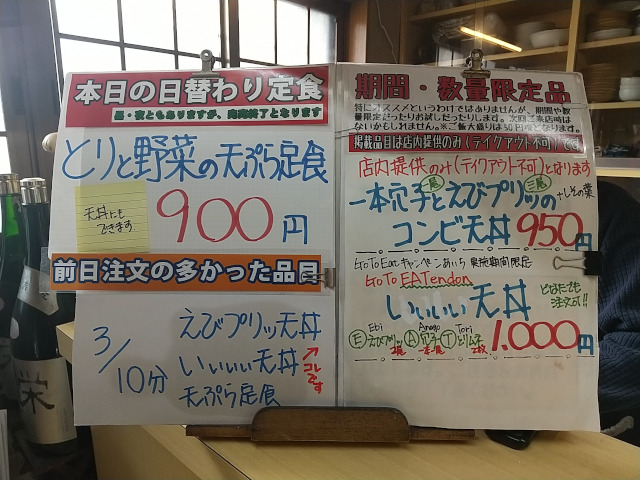 本日の日替わり定食
昼・夜ともありますが、売完終了となります
とりと野菜の天ぷら定食
天丼にも
できます
900円
前日注文の多かった品目
3/10分
えびプリッ天丼
いいいい天丼
天ぷら定食
コレです
期間・数量限定品
特にオススメというわけではありませんが、期間や数
量限定だったりお試しだったりします。次回ご来店時は
ないかもしれません。※ご飯大盛りは50円増となります。
掲載品目は店内提供のみ(テイクアウト不可)です
店内提供のみ(テイクアウト不可)となります
一本穴子とえびプリッの+しその葉
一尾 三尾
コンビ天丼 950円
Go To Eatキャンペーンあいち 実施期間限定
Go To EATendon
いいいい天丼 どなたでも
注文可!!
Ebi Anago Tori
Eえびプリッ Aアナゴ Tとりムネ 1,000円